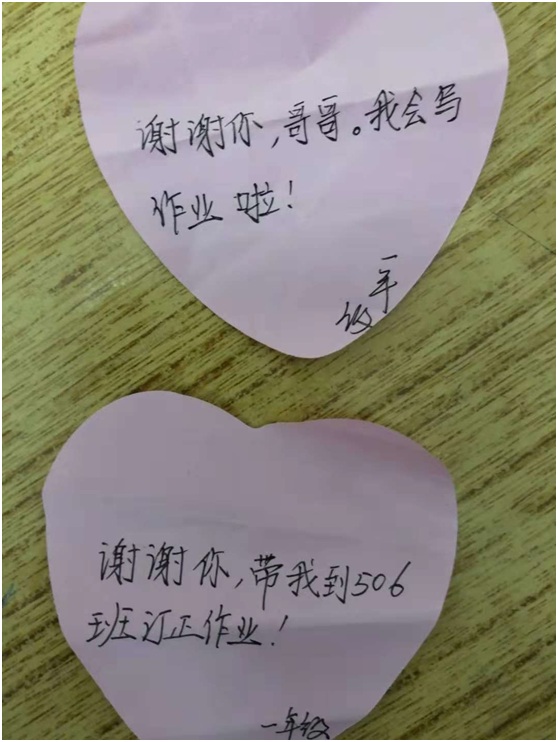 谢谢你,哥哥。我会写
作业啦!
一年
级
谢谢你,带我到506
班订正作业!
一年级